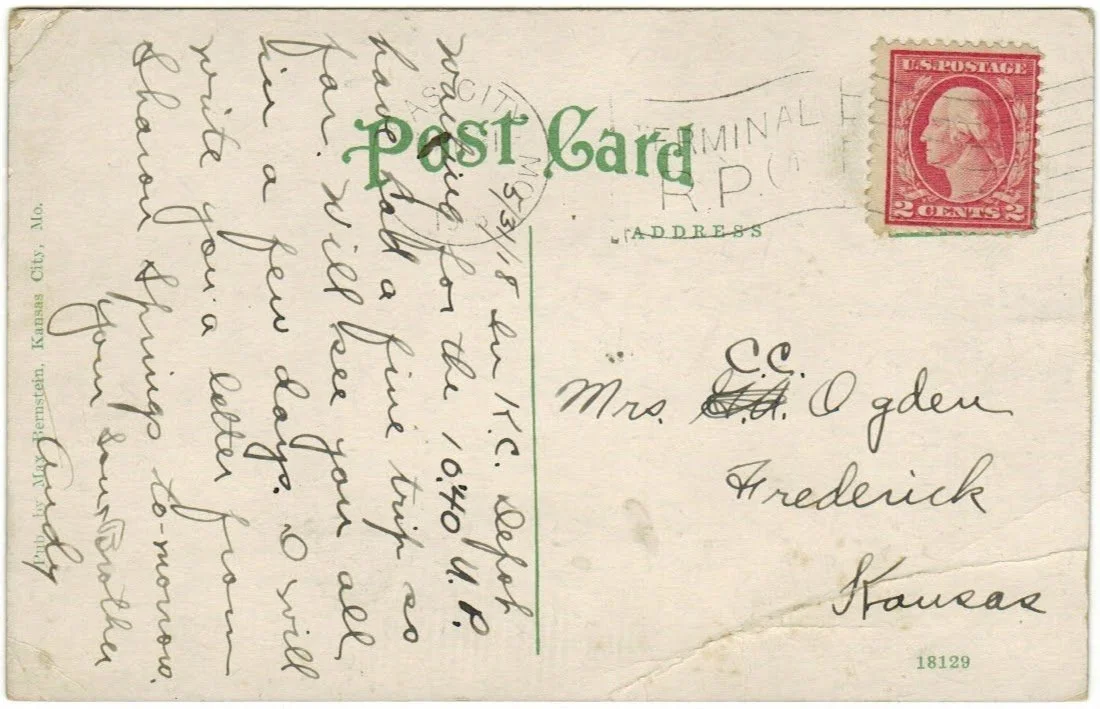 Post Card
KANSAS CITY, MO.
TERMINAL
R.P.O.
U.S. POSTAGE
2 CENTS 2
ADDRESS
5/31/18 In K.C. Depot
waiting for the 10:40 U.P.
have had a fine trip so
far. Will see you all
in a few days. I will
write you a letter from
Sharon Springs to-morrow.
Your Brother
Andy
Mrs. C.C. Ogden
Frederick
Kansas
Pub. by Max Bernstein, Kansas City, Mo.
18129